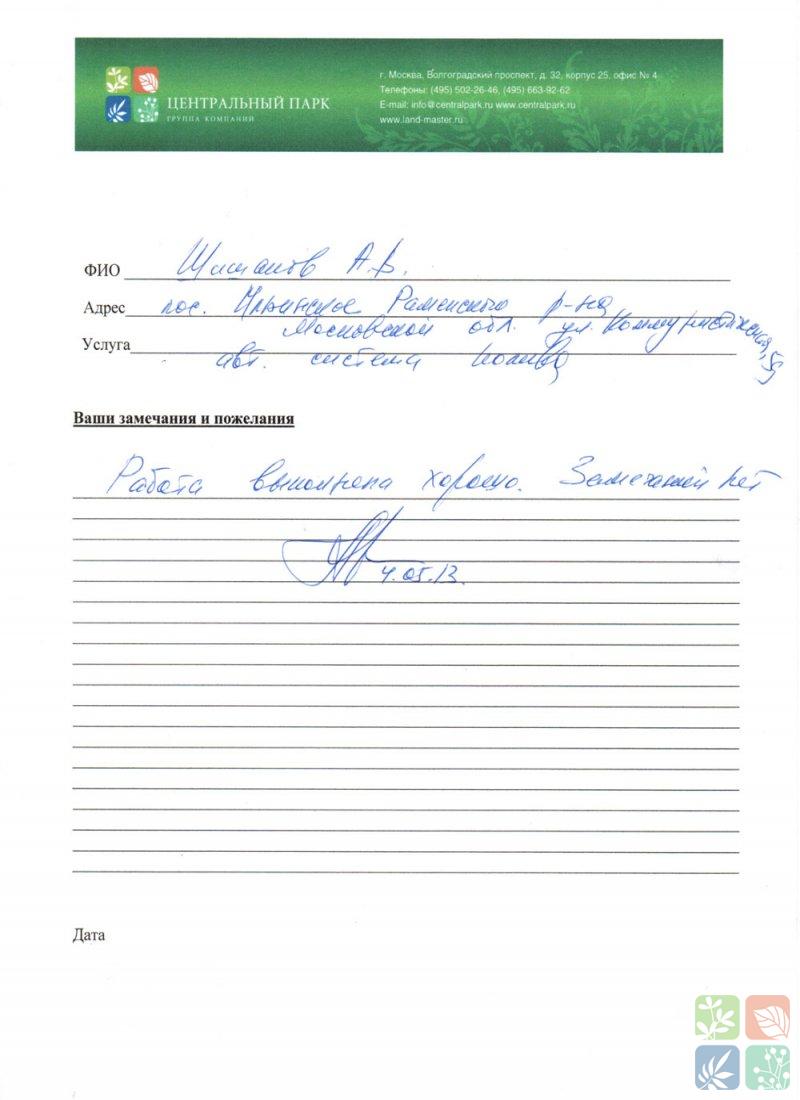 ЦЕНТРАЛЬНЫЙ ПАРК
ГРУППА КОМПАНИЙ
г. Москва, Волгоградский проспект, д. 32, корпус 25, офис № 4
Телефоны: (495) 502-26-46, (495) 663-92-62
E-mail: info@centralpark.ru www.centralpark.ru
www.land-master.ru
ФИО А.В.
Адрес пос. Ильинское Раменского р-на
Московской обл. ул. Коммунистическая, 59
Услуга авт. система полива
Ваши замечания и пожелания
Работа выполнена хорошо. Замечаний нет
4.05.13.
Дата